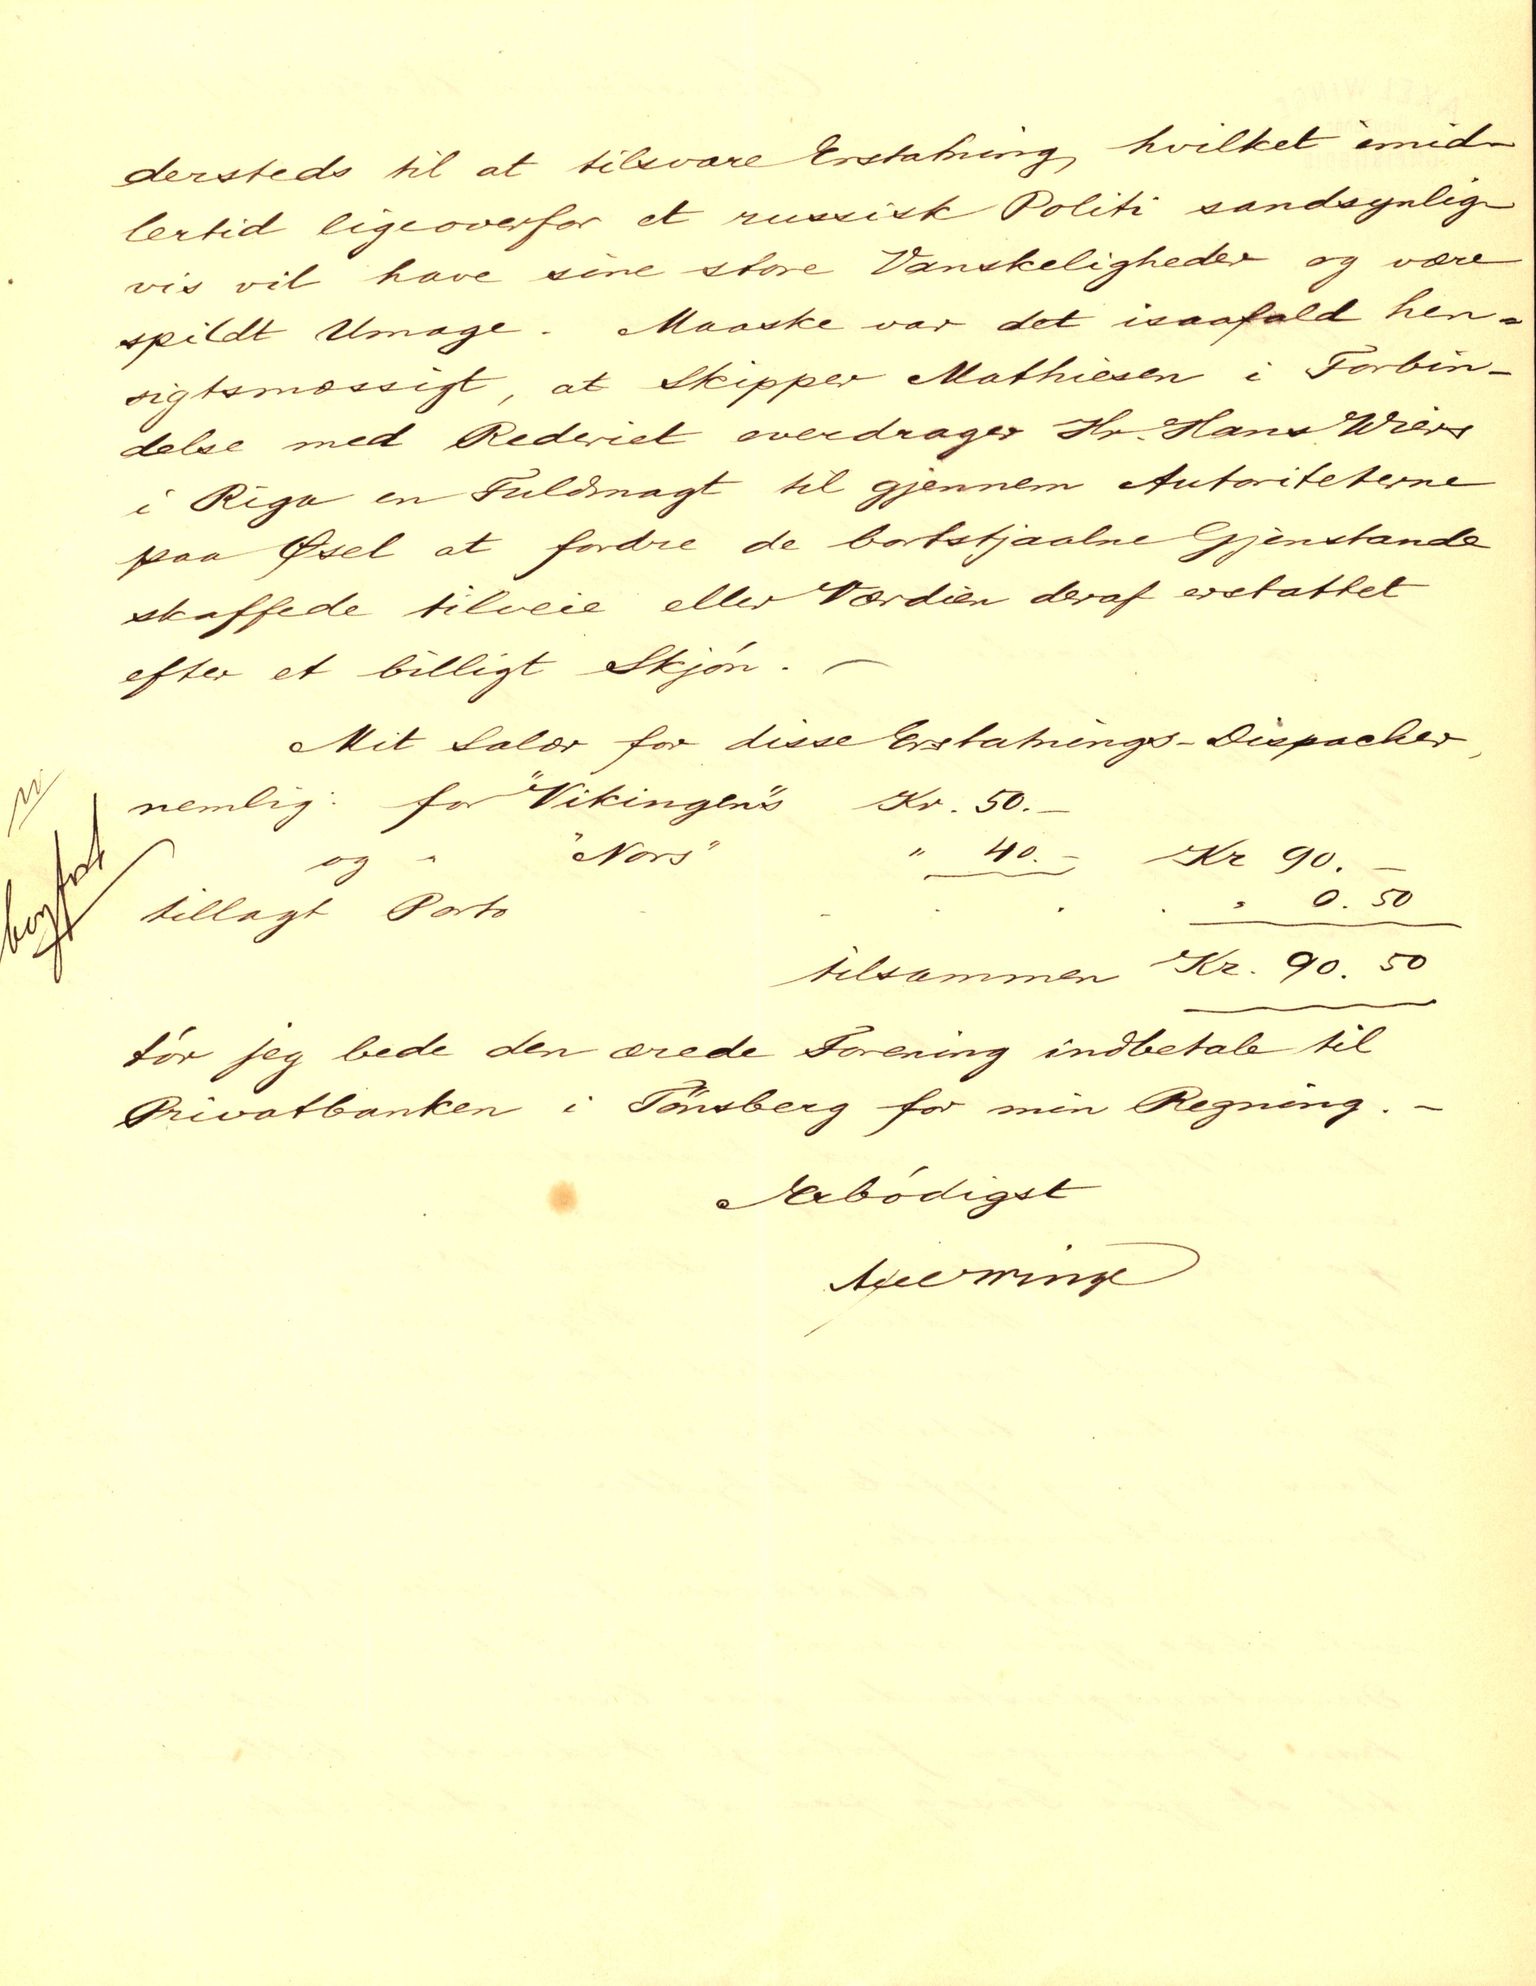 dersteds til at tilsvare Erstatning, hvilket imid-
lertid ligeoverfor et russisk Politi sandsynlig-
vis vil have sine store Vanskeligheder og være
spildt Umage. Maaske var det isaafald hen-
sigtsmæssigt, at Skipper Mathiesen i Forbin-
delse med Rederiet overdrager Hr. Hans Wiers
i Riga en Fuldmagt til gjennem Autoriteterne
paa Øsel at fordre de bortstjaalne Gjenstande
skaffede tilveie eller Værdien deraf erstattet
efter et billigt Skjøn. -
Mit Salær for disse Erstatnings-Dispacher,
nemlig: for "Vikingen"s Kr. 50.-
og " "Nors" " 40.- Kr 90.-
tillagt Porto . . . . " 0.50
tilsammen Kr. 90.50
tør jeg bede den ærede Forening indbetale til
Privatbanken i Tönsberg for min Regning. -
Ærbødigst
Axel Winge
bogført